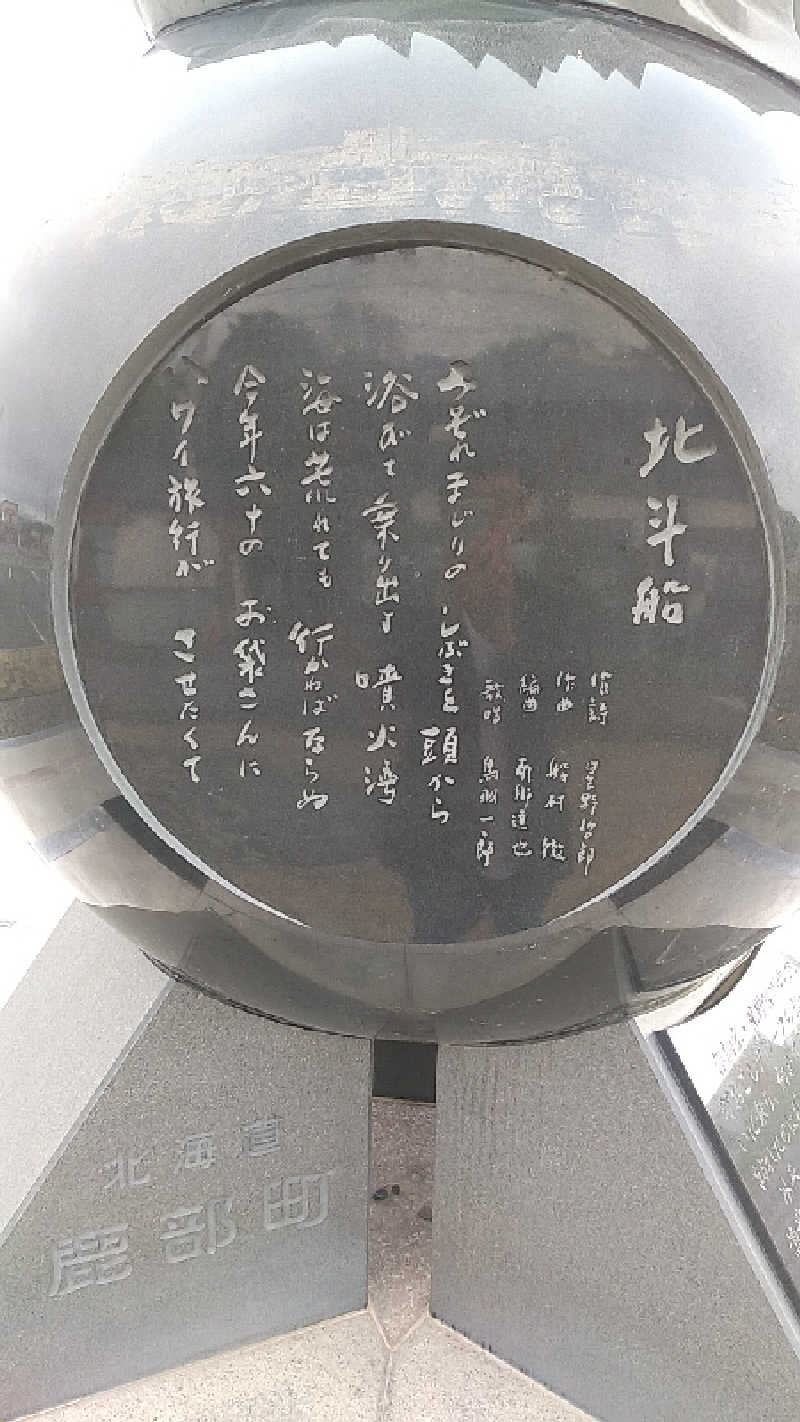 北斗船
作詩 星野哲郎
作曲 船村 徹
編曲 南郷達也
歌唱 鳥羽一郎
みぞれまじりの しぶきを 頭から
浴びて 乗り出す 噴火湾
海は荒れても 行かねばならぬ
今年六十の お袋さんに
ハワイ旅行が させたくて
北海道
鹿部町